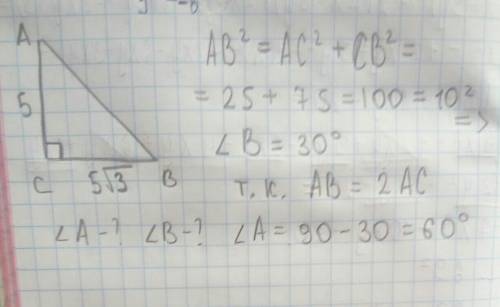 A
5
C 5√3 B
∠A-? ∠B-?
AB² = AC² + CB² =
= 25 + 75 = 100 = 10²
=>
∠B = 30°
т.к. AB = 2AC
∠A = 90 - 30 = 60°